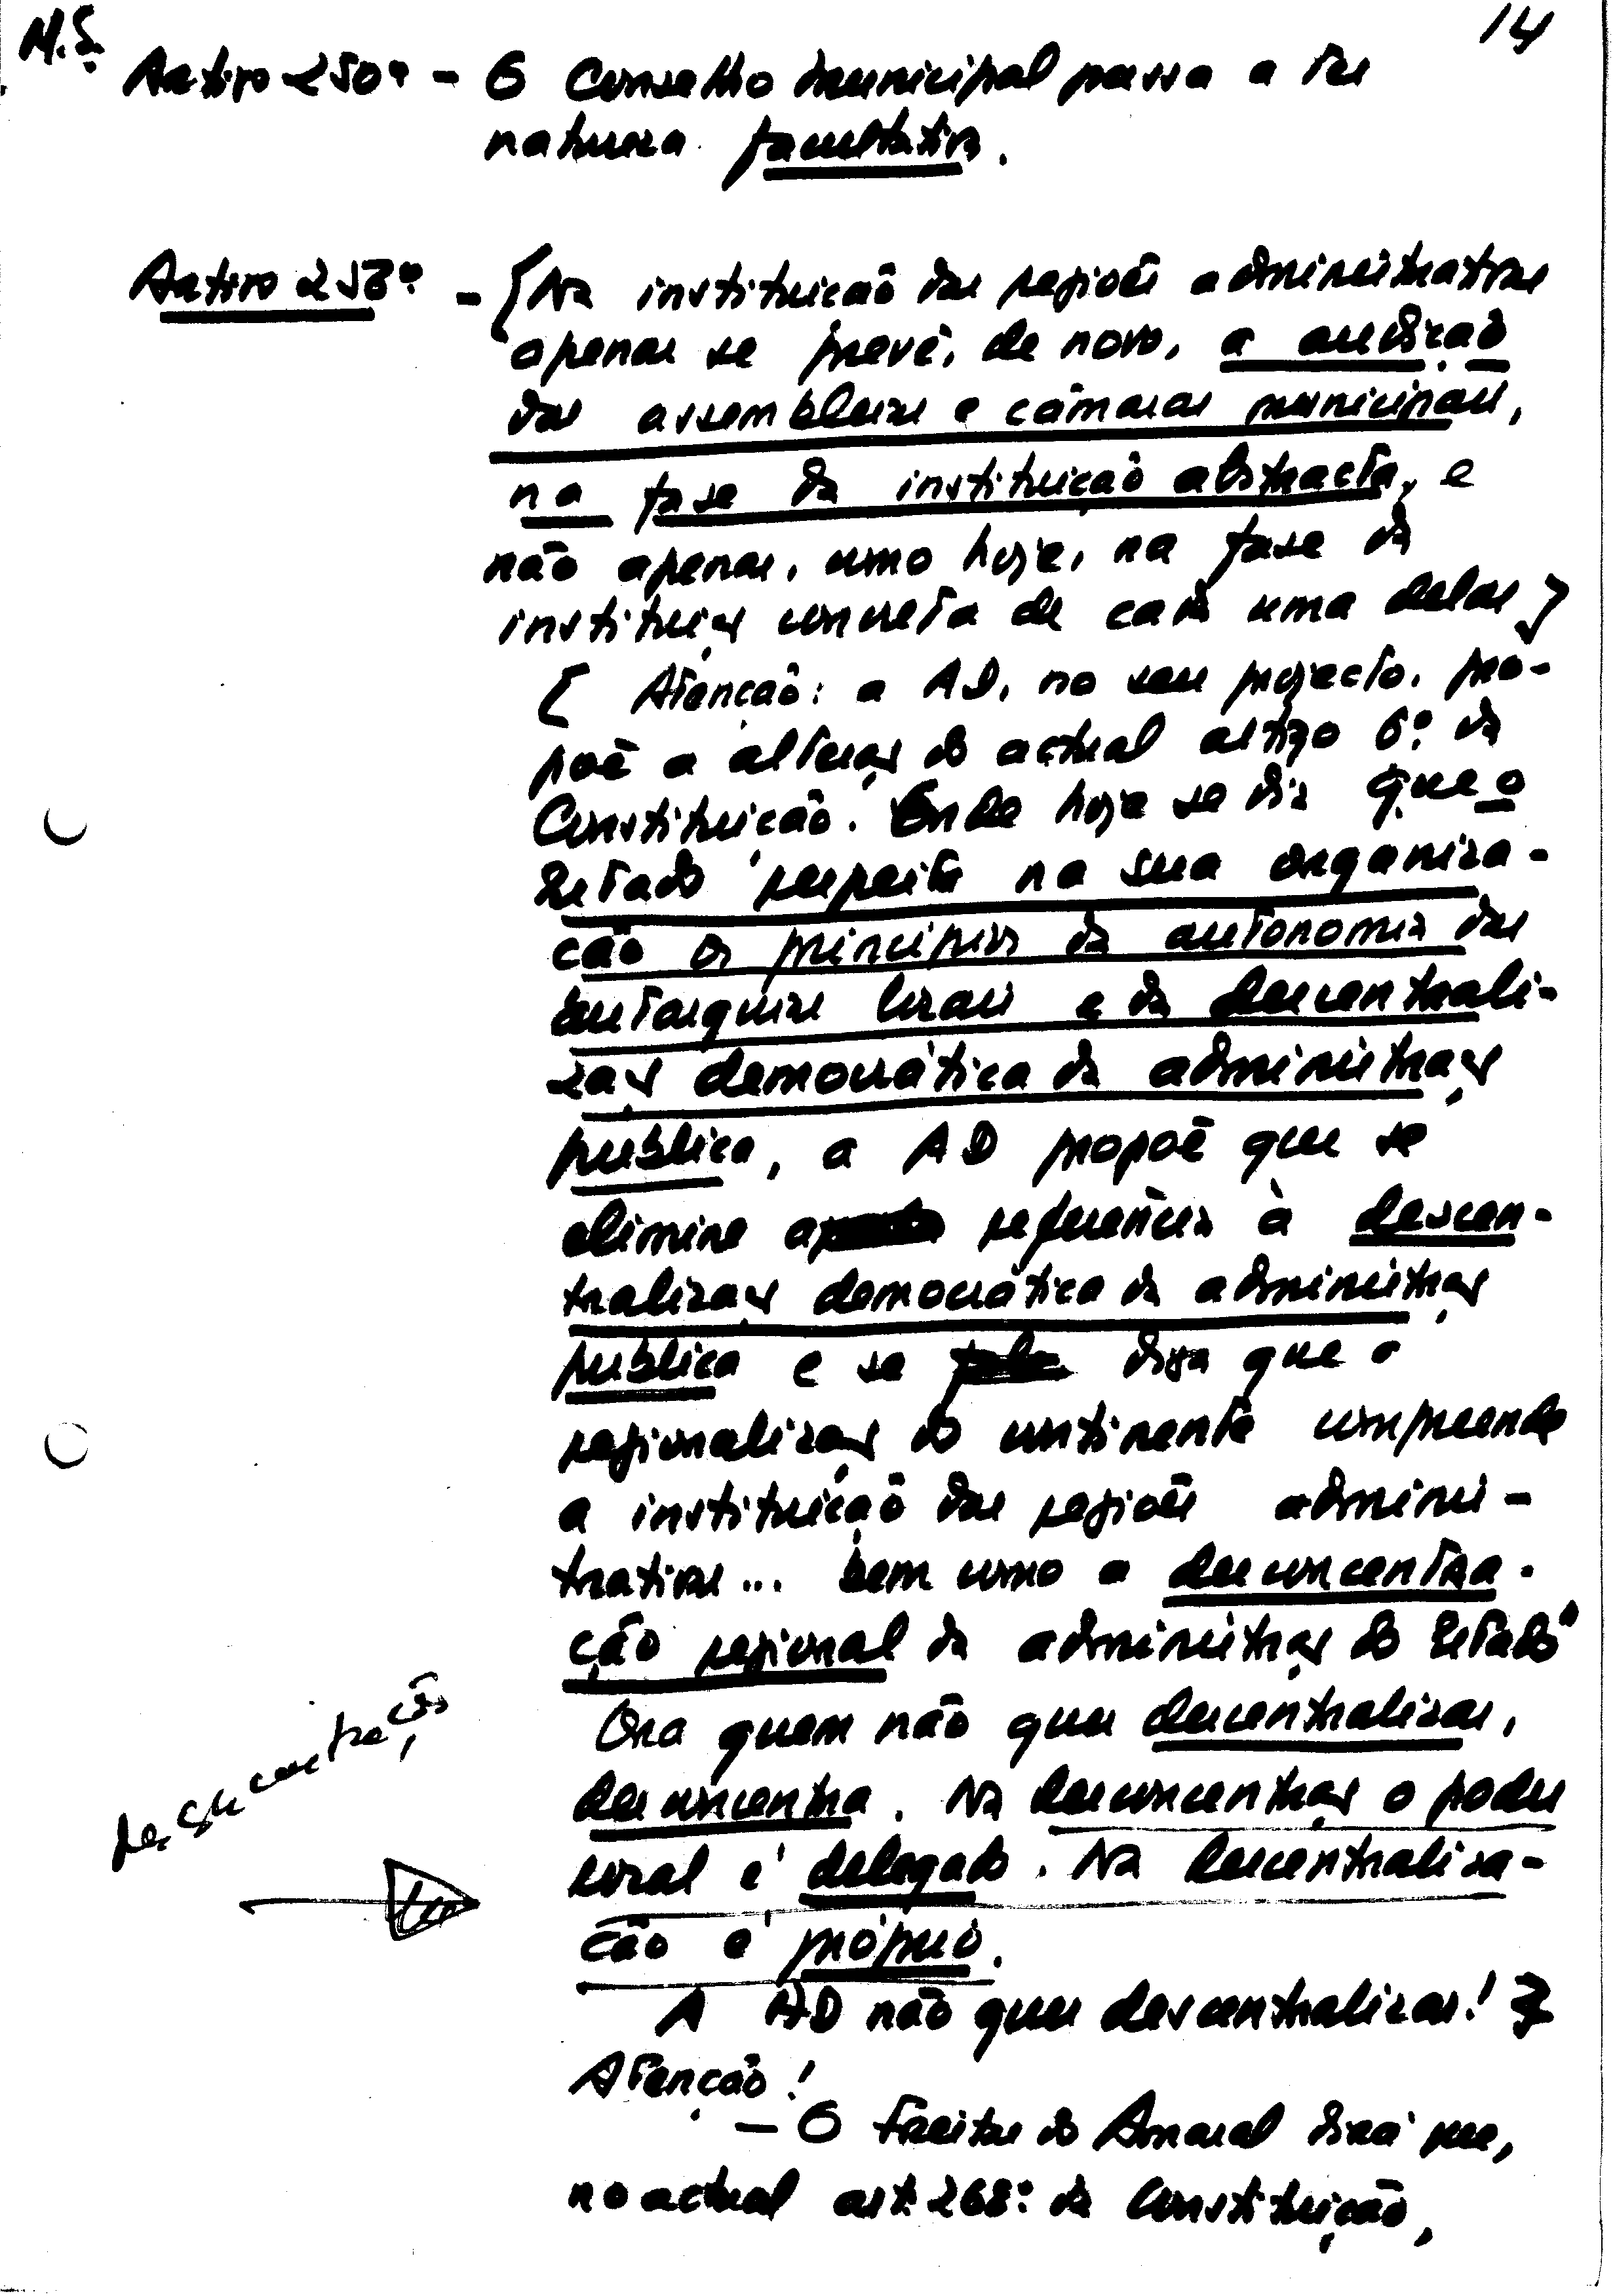 M.S.
14
Artigo 250º - O Conselho Municipal passa a ter
natureza facultativa.
Artigo 256º - [Na instituição das regiões administrativas
apenas se prevê, de novo, a audição
das assembleias e câmaras municipais,
na fase da instituição abstracta, e
não apenas, como hoje, na fase da
instituição concreta de cada uma delas]
[Atenção: a AD, no seu projecto, pro-
põe a alteração do actual artigo 6º da
Constituição. Onde hoje se diz que o
Estado "respeita na sua organiza-
ção os princípios da autonomia das
autarquias locais e da descentrali-
zação democrática da administração
pública, a AD propõe que se
elimine a referência à descen-
tralização democrática da administração
pública e se diga que a
regionalização do continente compreende
a instituição das regiões adminis-
trativas... bem como a desconcentra-
ção regional da administração do Estado"
Ora quem não quer descentralizar,
desconcentra. Na desconcentração o poder
local é delegado. Na descentraliza-
ção é próprio.
desconcentração
A AD não quer descentralizar!]
Atenção!
- O Freitas do Amaral dirá que,
no actual artº 268º da Constituição,